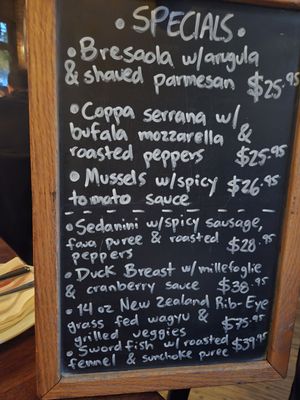 • SPECIALS •
• Bresaola w/arugula
& shaved parmesan $25.95
• Coppa serrana w/
bufala mozzarella &
roasted peppers $25.95
• Mussels w/spicy
tomato sauce $26.95
• Sedanini w/spicy sausage,
fava puree & roasted
peppers $28.95
• Duck Breast w/millefoglie
& cranberry sauce $38.95
• 14 oz New Zealand Rib-Eye
grass fed wagyu &
grilled veggies $75.95
• Swordfish w/roasted
fennel & sunchoke puree $39.95